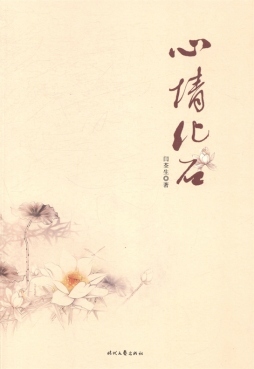 心情化石
闫圣生●著
时代文艺出版社